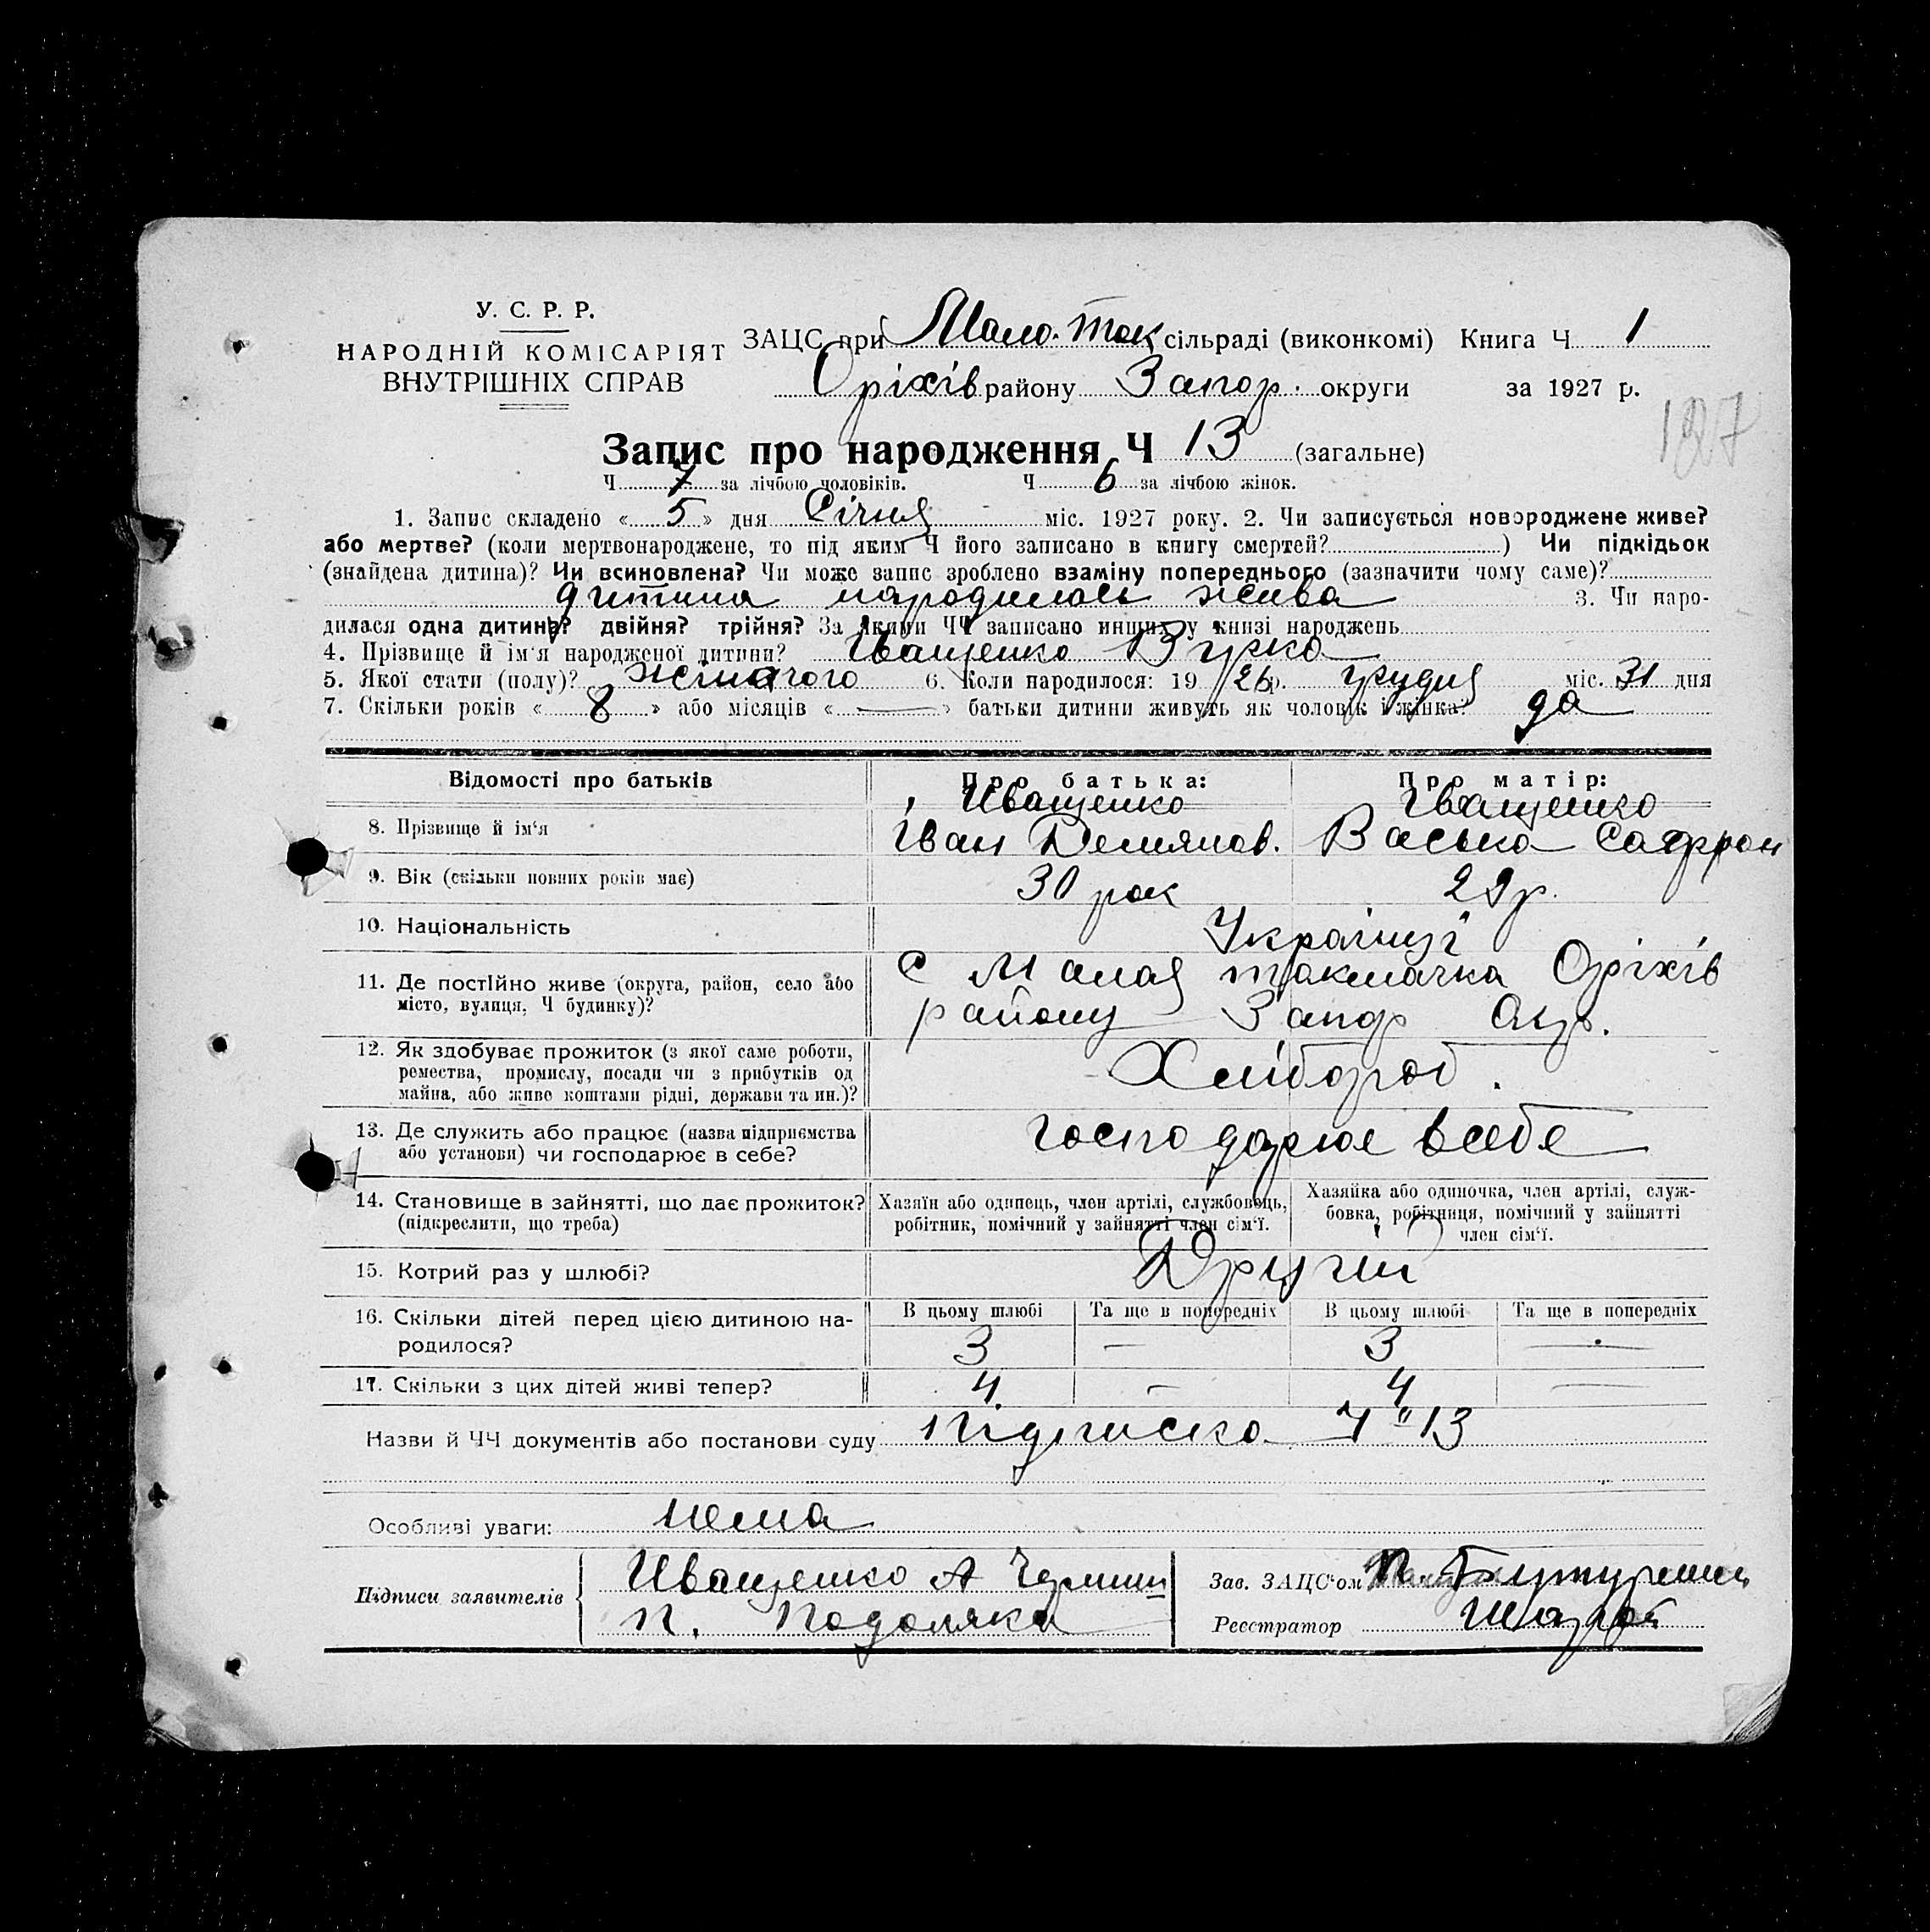 У. С. Р. Р.
НАРОДНІЙ КОМІСАРІЯТ
ВНУТРІШНІХ СПРАВ
ЗАЦС при Мало-Ток сільраді (виконкомі) Книга Ч 1
Оріхів району Запор. округи за 1927 р.
127
Запис про народження Ч 13 (загальне)
Ч 7 за лічбою чоловіків. Ч 6 за лічбою жінок.
1. Запис складено « 5 » дня Січня міс. 1927 року. 2. Чи записується новороджене живе?
або мертве? (коли мертвонароджене, то під яким Ч його записано в книгу смертей? ) Чи підкідьок
(знайдена дитина)? Чи всиновлена? Чи може запис зроблено взаміну попереднього (зазначити чому саме)?
дитина народилась жива 3. Чи наро-
дилася одна дитина? двійня? трійня? За якими ЧЧ записано инших у книзі народжень
4. Прізвище й ім'я народженої дитини? Іващенко
5. Якої стати (полу)? жіночого 6. Коли народилося: 19 26 р. грудня міс. 31 дня
7. Скільки років « 8 » або місяців « — » батьки дитини живуть як чоловік і жінка? да
Відомості про батьків Про батька: Про матір:
Иващенко Іващенко
8. Прізвище й ім'я Іван Демянов. Васька Сафрон
9. Вік (скільки повних років має) 30 рок 29 р.
10. Національність Україці
11. Де постійно живе (округа, район, село або
місто, вулиця, Ч будинку)?
с Малая токмачка Оріхів
району Запор Окр.
12. Як здобуває прожиток (з якої саме роботи,
ремества, промислу, посади чи з прибутків од
майна, або живе коштами рідні, держави та ин.)?
Хлібороб.
13. Де служить або працює (назва підприємства
або установи) чи господарює в себе?
господарює в себе
14. Становище в зайнятті, що дає прожиток?
(підкреслити, що треба)
Хазяїн або одинець, член артілі, службовець,
робітник, помічний у зайнятті член сім'ї.
Хазяйка або одиночка, член артілі, служ-
бовка, робітниця, помічний у зайнятті
член сім'ї.
15. Котрий раз у шлюбі? Другий
16. Скільки дітей перед цією дитиною на-
родилося?
В цьому шлюбі Та ще в попередніх В цьому шлюбі Та ще в попередніх
3 — 3 —
17. Скільки з цих дітей живі тепер? 4 — 4 —
Назви й ЧЧ документів або постанови суду Підписка Ч 13
Особливі уваги: нема
Підписи заявителів Иващенко А
п. Подоляка
Зав. ЗАЦС'ом
Реєстратор